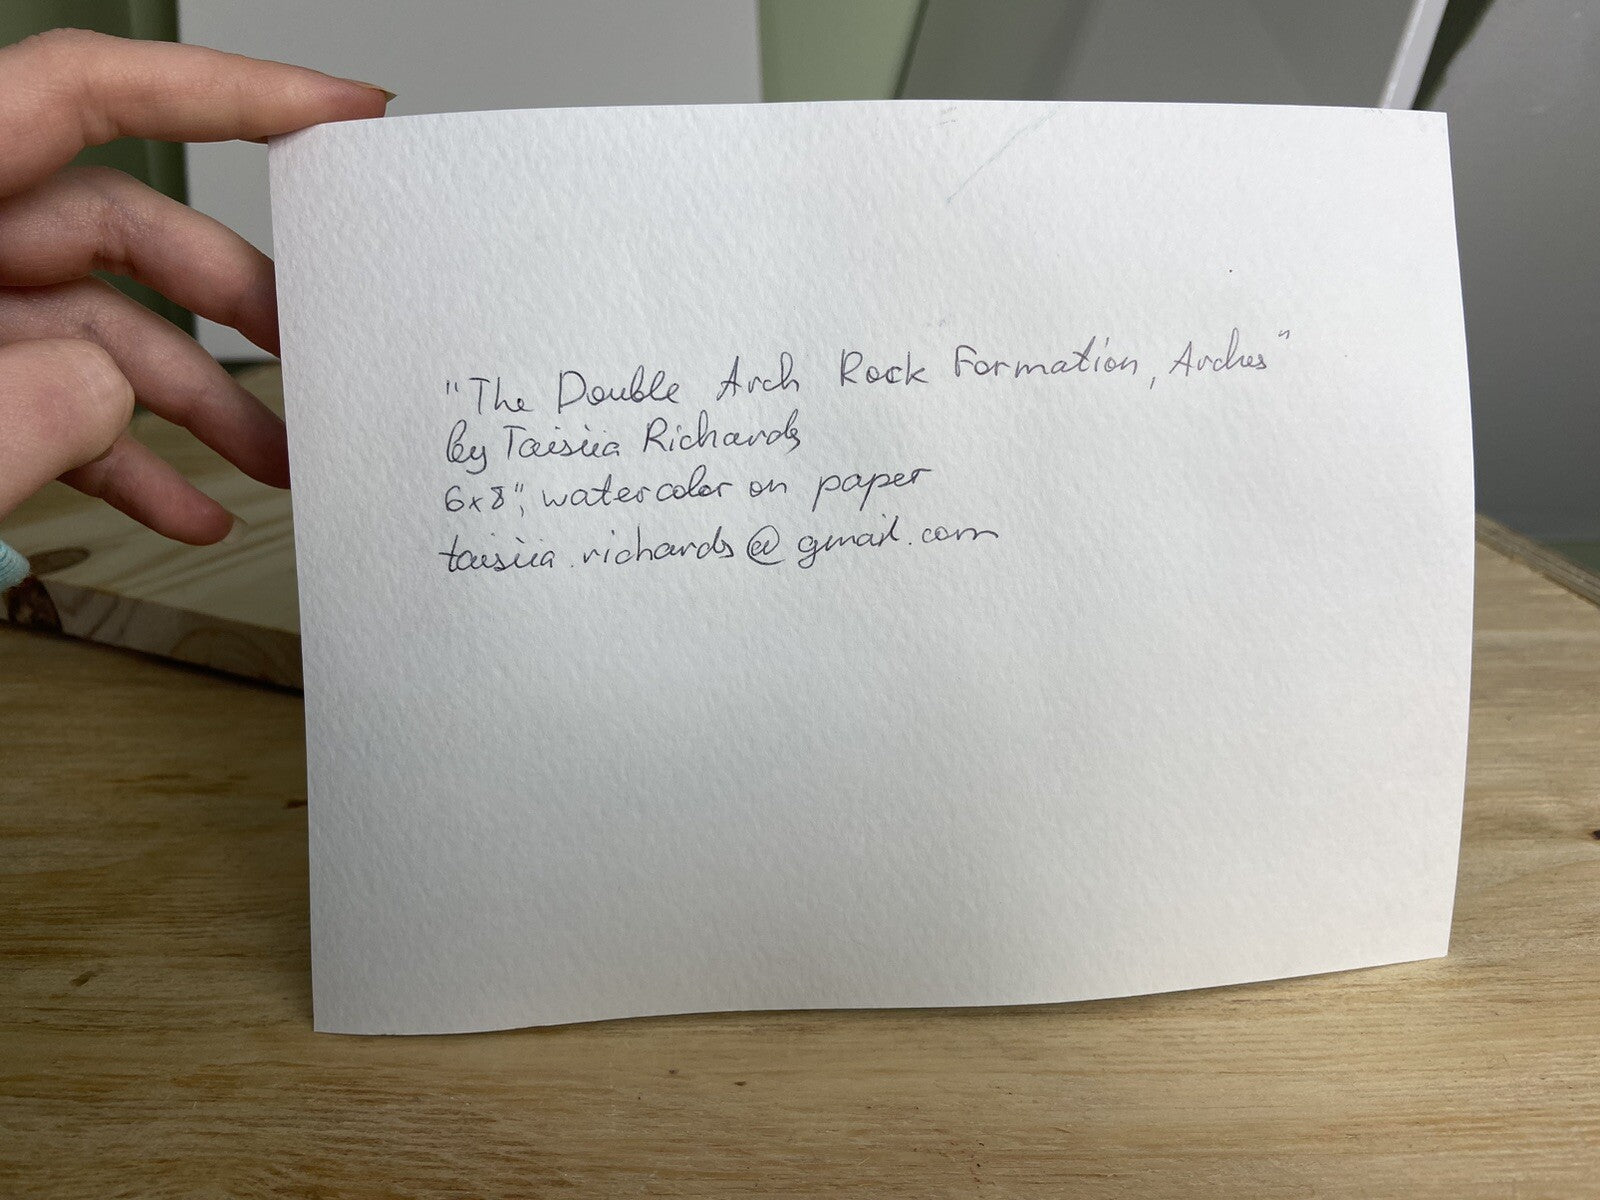 "The Double Arch Rock Formation, Arches"
by Taisiia Richards
6x8", watercolor on paper
taisiia.richards@gmail.com